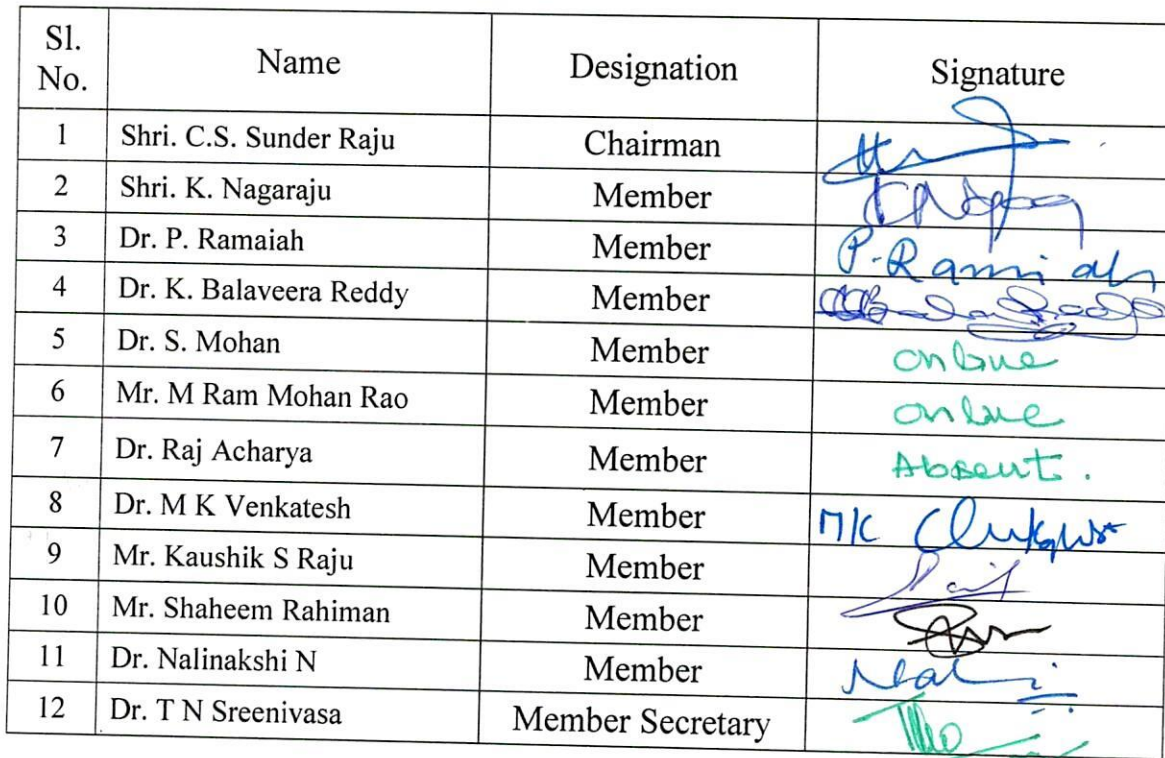 Sl. No. Name Designation Signature
1 Shri. C.S. Sunder Raju Chairman
2 Shri. K. Nagaraju Member
3 Dr. P. Ramaiah Member P. Ramaiah
4 Dr. K. Balaveera Reddy Member
5 Dr. S. Mohan Member online
6 Mr. M Ram Mohan Rao Member online
7 Dr. Raj Acharya Member Absent.
8 Dr. M K Venkatesh Member MK
9 Mr. Kaushik S Raju Member
10 Mr. Shaheem Rahiman Member
11 Dr. Nalinakshi N Member
12 Dr. T N Sreenivasa Member Secretary